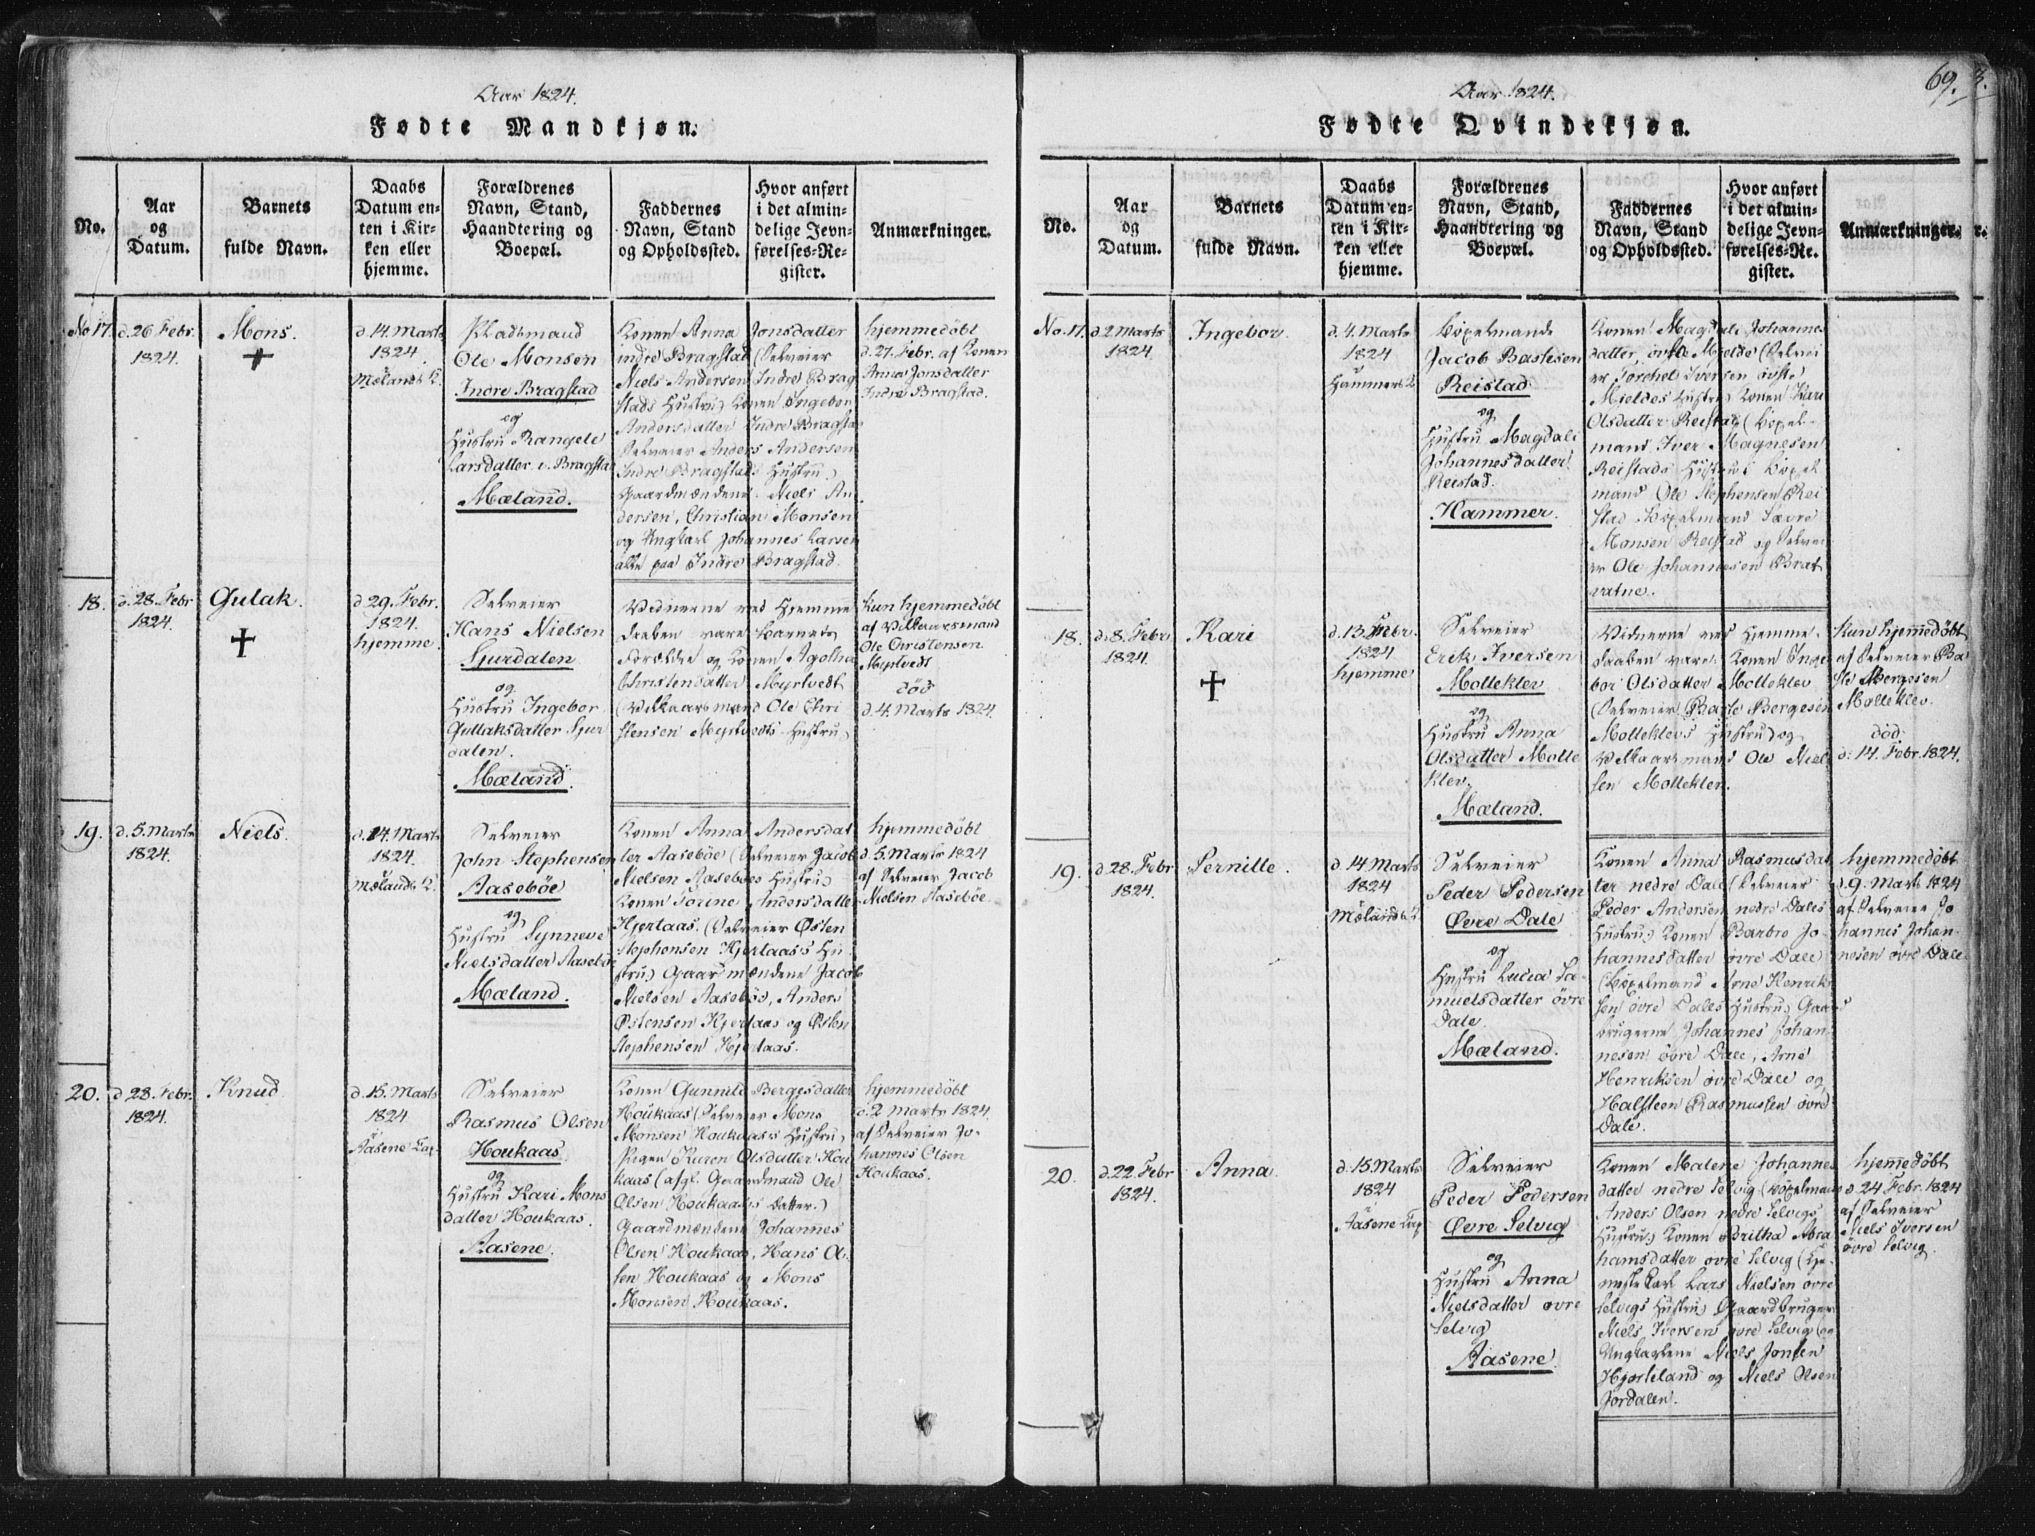 Aar 1824.
Fødte Mandkjøn.
No.
Aar
og
Datum.
Barnets
fulde Navn.
Daabs
Datum en-
ten i Kir-
ken eller
hjemme.
Forældrenes
Navn, Stand,
Haandtering og
Boepæl.
Faddernes
Navn, Stand
og Opholdssted.
Hvor anført
i det almin-
delige Jevn-
førelses-Re-
gister.
Anmærkninger.
No 17.
d. 26 Febr.
1824.
Mons.
d. 14. Marts
1824.
Mælands K.
Pladsmand
Ole Monsen
Indre Bragstad
og
Hustru Rangele
Larsdatter i. Bragstad
Mæland.
Konen Anna Jonsdatter
indre Bragstad (Selveier
Niels Andersen Indre Brag
stads Hustru) Konen Ingebor
Andersdatter Indre Bragstad
Selveier Anders Andersen
Indre Bragstads Hustru)
Gaardmændene. Niels An
dersen, Christian Monsen
og Ungkarl Johannes Larsen
alle paa Indre Bragstad.
hjemmedøbt
d. 27. Febr. af Konen
Anna Jonsdatter
Indre Bragstad.
18.
d. 28. Febr
1824.
Gulak.
d 29. Febr.
1824.
hjemme.
Selveier
Hans Nielsen
Sjurdalen
og
Hustru Ingebor
Gullaksdatter Sjur
dalen.
Mæland.
Vidnerne ved Hjemme
daaben vare Barnets
Forældre og Konen Agatha
Christensdatter Myrtvedt
(Vilkaarsmand Ole Chri
stensen Myrtvedts Hustru)
Kun hjemmedøbt
af Vilkaarsmand
Ole Christensen
Myrtvedt
død
d. 4. Marts 1824.
19.
d. 5. Marts
1824.
Niels.
d. 14. Marts
1824.
Mælands K.
Selveier
John Stephensen
Aasebøe
og
Hustru Synneve
Nielsdatter Aasebøe
Mæland.
Konen Anna Andersdat
ter Aasebøe (Selveier Jacob
Nielsen Aasebøes Hustru)
Konen Torine Andersdatter
Hjertaas. (Selveier Østen
Stephensen Hjertaas's Hu
stru) Gaardmændene Jacob
Nielsen Aasebøe, Anders
Østensen Hjertaas og Østen
Stephensen Hjertaas.
hjemmedøbt
d. 5. Marts 1824
af Selveier Jacob
Nielsen Aasebøe.
20.
d 28. Febr.
1824.
Knud
d. 15. Marts
1824
Aasene Cap.
Selveier
Rasmus Olsen
Houkaas.
og
Hustru Kari Mons
datter Houkaas.
Aasene.
Konen Gunnild Bergesdatter
Houkaas (Selveier Mons
Monsen Houkaas's Hustru)
Pigen Karen Olsdatter Hou
kaas (afgl. Gaardmand Ole
Olsen Houkaas's Datter.)
Gaardmændene Johannes
Olsen Houkaas, Hans Ol
sen Houkaas og Mons
Monsen Houkaas.
hjemmedøbt
d. 2 Marts 1824.
af Selveier Jo-
hannes Olsen
Houkaas.
69.
3.
Aar 1824.
Fødte Qvindekjøn.
No.
Aar
og
Datum.
Barnets
fulde Navn.
Daabs
Datum en-
ten i Kir-
ken eller
hjemme.
Forældrenes
Navn, Stand,
Haandtering og
Boepæl.
Faddernes
Navn, Stand
og Opholdssted.
Hvor anført
i det almin-
delige Jevn-
førelses-Re-
gister.
Anmærkninger.
r.
No. 17.
d. 2 Marts
1824.
Ingebor.
d. 4. Marts
1824
Hammers K
Bøxelmand
Jacob Bastesen
Reistad
og
Hustru Magdali
Johannesdatter
Reistad.
Hammer.
Konen Magdali Johannes
datter, øvste Mjelde (Selvei
er Torchel Iversen øvste
Mieldes Hustru) Konen Kari
Olsdatter Reistad (Bøxel-
mand Iver Magnesen
Reistads Hustru) Bøxel
mand Ole Stephensen Rei
stad Bøxelmand Sævre
Monsen Reistad og Selvei
er Ole Johannesen Brat
vatne.
18.
d. 8. Febr.
1824.
Kari
d. 13. Febr.
1824
hjemme
Selveier
Erik Iversen
Molleklev
og
Hustru Anna
Olsdatter Molle
klev.
Mæland.
Vidnerne ved Hjemme-
daaben vare. Konen Inge
bor Olsdatter Molleklev
(Selveier Baste Bergesen
Molleklevs Hustru) og
Vilkaarsmand Ole Niel
sen Molleklev.
Kun hjemmedøbt
af Selveier Ba
ste Bergesen
Molleklev.
død
d. 14. Febr. 1824.
19.
d. 28. Febr
1824.
Pernille.
d. 14 Marts
1824
Mælands K.
Selveier
Peder Pedersen
Øvre Dale
og
Hustru Lucia Sa-
muelsdatter øvre
Dale.
Mæland.
Konen Anna Rasmusdat
ter nedre Dale (Selveier
Peder Andersen nedre Dales
Hustru) Konen Barbro Jo-
hannesdatter øvre Dale
(Bøxelmand Arne Henrik
sen øvre Dales Hustru) Gaard
brugerne Johannes Johan
nesen øvre Dale, Arne
Henriksen øvre Dale og
Halsteen Rasmussen øvre
Dale.
hjemmedøbt
d. 9. Marts 1824
af Selveier Jo
hannes Johan-
nesen øvre Dale
20.
d. 22. Febr
1824.
Anna.
d. 15. Marts
1824
Aasene Cap
Selveier
Peder Pedersen
Øvre Selvig
og
Hustru Anna
Nielsdatter øvre
Selvig
Aasene.
Konen Malene Johannes
datter nedre Selvig (Bøxelmand
Anders Olsen nedre Selvigs
Hustru) Konen Britha Abra
hamsdatter øvre Selvig (Tje-
neste Karl Lars Nielsen øvre
Selvigs Hustru) Gaardbruger
Niels Iversen øvre Selvig og
Ungkarlene Niels Jonsen
Hjorteland og Niels Olsen
Jordalen.
hjemmedøbt
d 24 Febr. 1824
af Selveier
Niels Iversen
øvre Selvig.